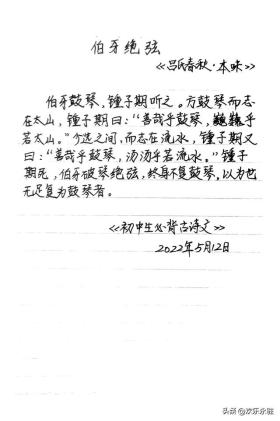 伯牙绝弦
《吕氏春秋·本味》
伯牙鼓琴,锺子期听之。方鼓琴而志
在太山,锺子期曰:“善哉乎鼓琴,巍巍乎
若太山。”少选之间,而志在流水,锺子期又
曰:“善哉乎鼓琴,汤汤乎若流水。”锺子
期死,伯牙破琴绝弦,终身不复鼓琴,以为世
无足复为鼓琴者。
《初中生必背古诗文》
2022年5月12日
头条@欢乐永胜